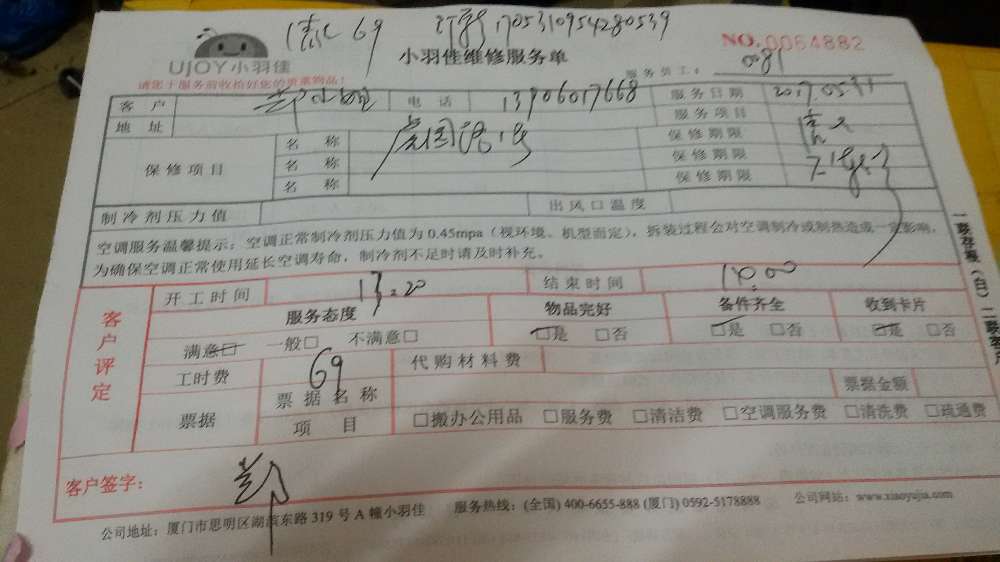 69 1705310954280539
UJOY小羽佳 小羽佳维修服务单 NO.0054882
请您于服务前收检好您的贵重物品! 服务员工: 0081
客户 郑小姐 电话 13906017668 服务日期 2017.05.31
地址 服务项目
保修项目 名称 保修期限
名称 保修期限
名称 保修期限
制冷剂压力值 出风口温度
空调服务温馨提示:空调正常制冷剂压力值为0.45mpa(视环境、机型而定),拆装过程会对空调制冷或制热造成一定影响,
为确保空调正常使用延长空调寿命,制冷剂不足时请及时补充。
客户评定
开工时间 13:20 结束时间 14:00
服务态度 物品完好 备件齐全 收到卡片
满意□ 一般□ 不满意□ □是 □否 □是 □否 □是 □否
工时费 69 代购材料费
票据 票据名称 票据金额
项目 □搬办公用品 □服务费 □清洁费 □空调服务费 □清洗费 □疏通费
客户签字: 郑
公司地址:厦门市思明区湖滨东路319号A幢小羽佳 服务热线:(全国) 400-6655-888 (厦门) 0592-5178888 公司网站:www.xiaoyujia.com
一联存根(白)二联客户